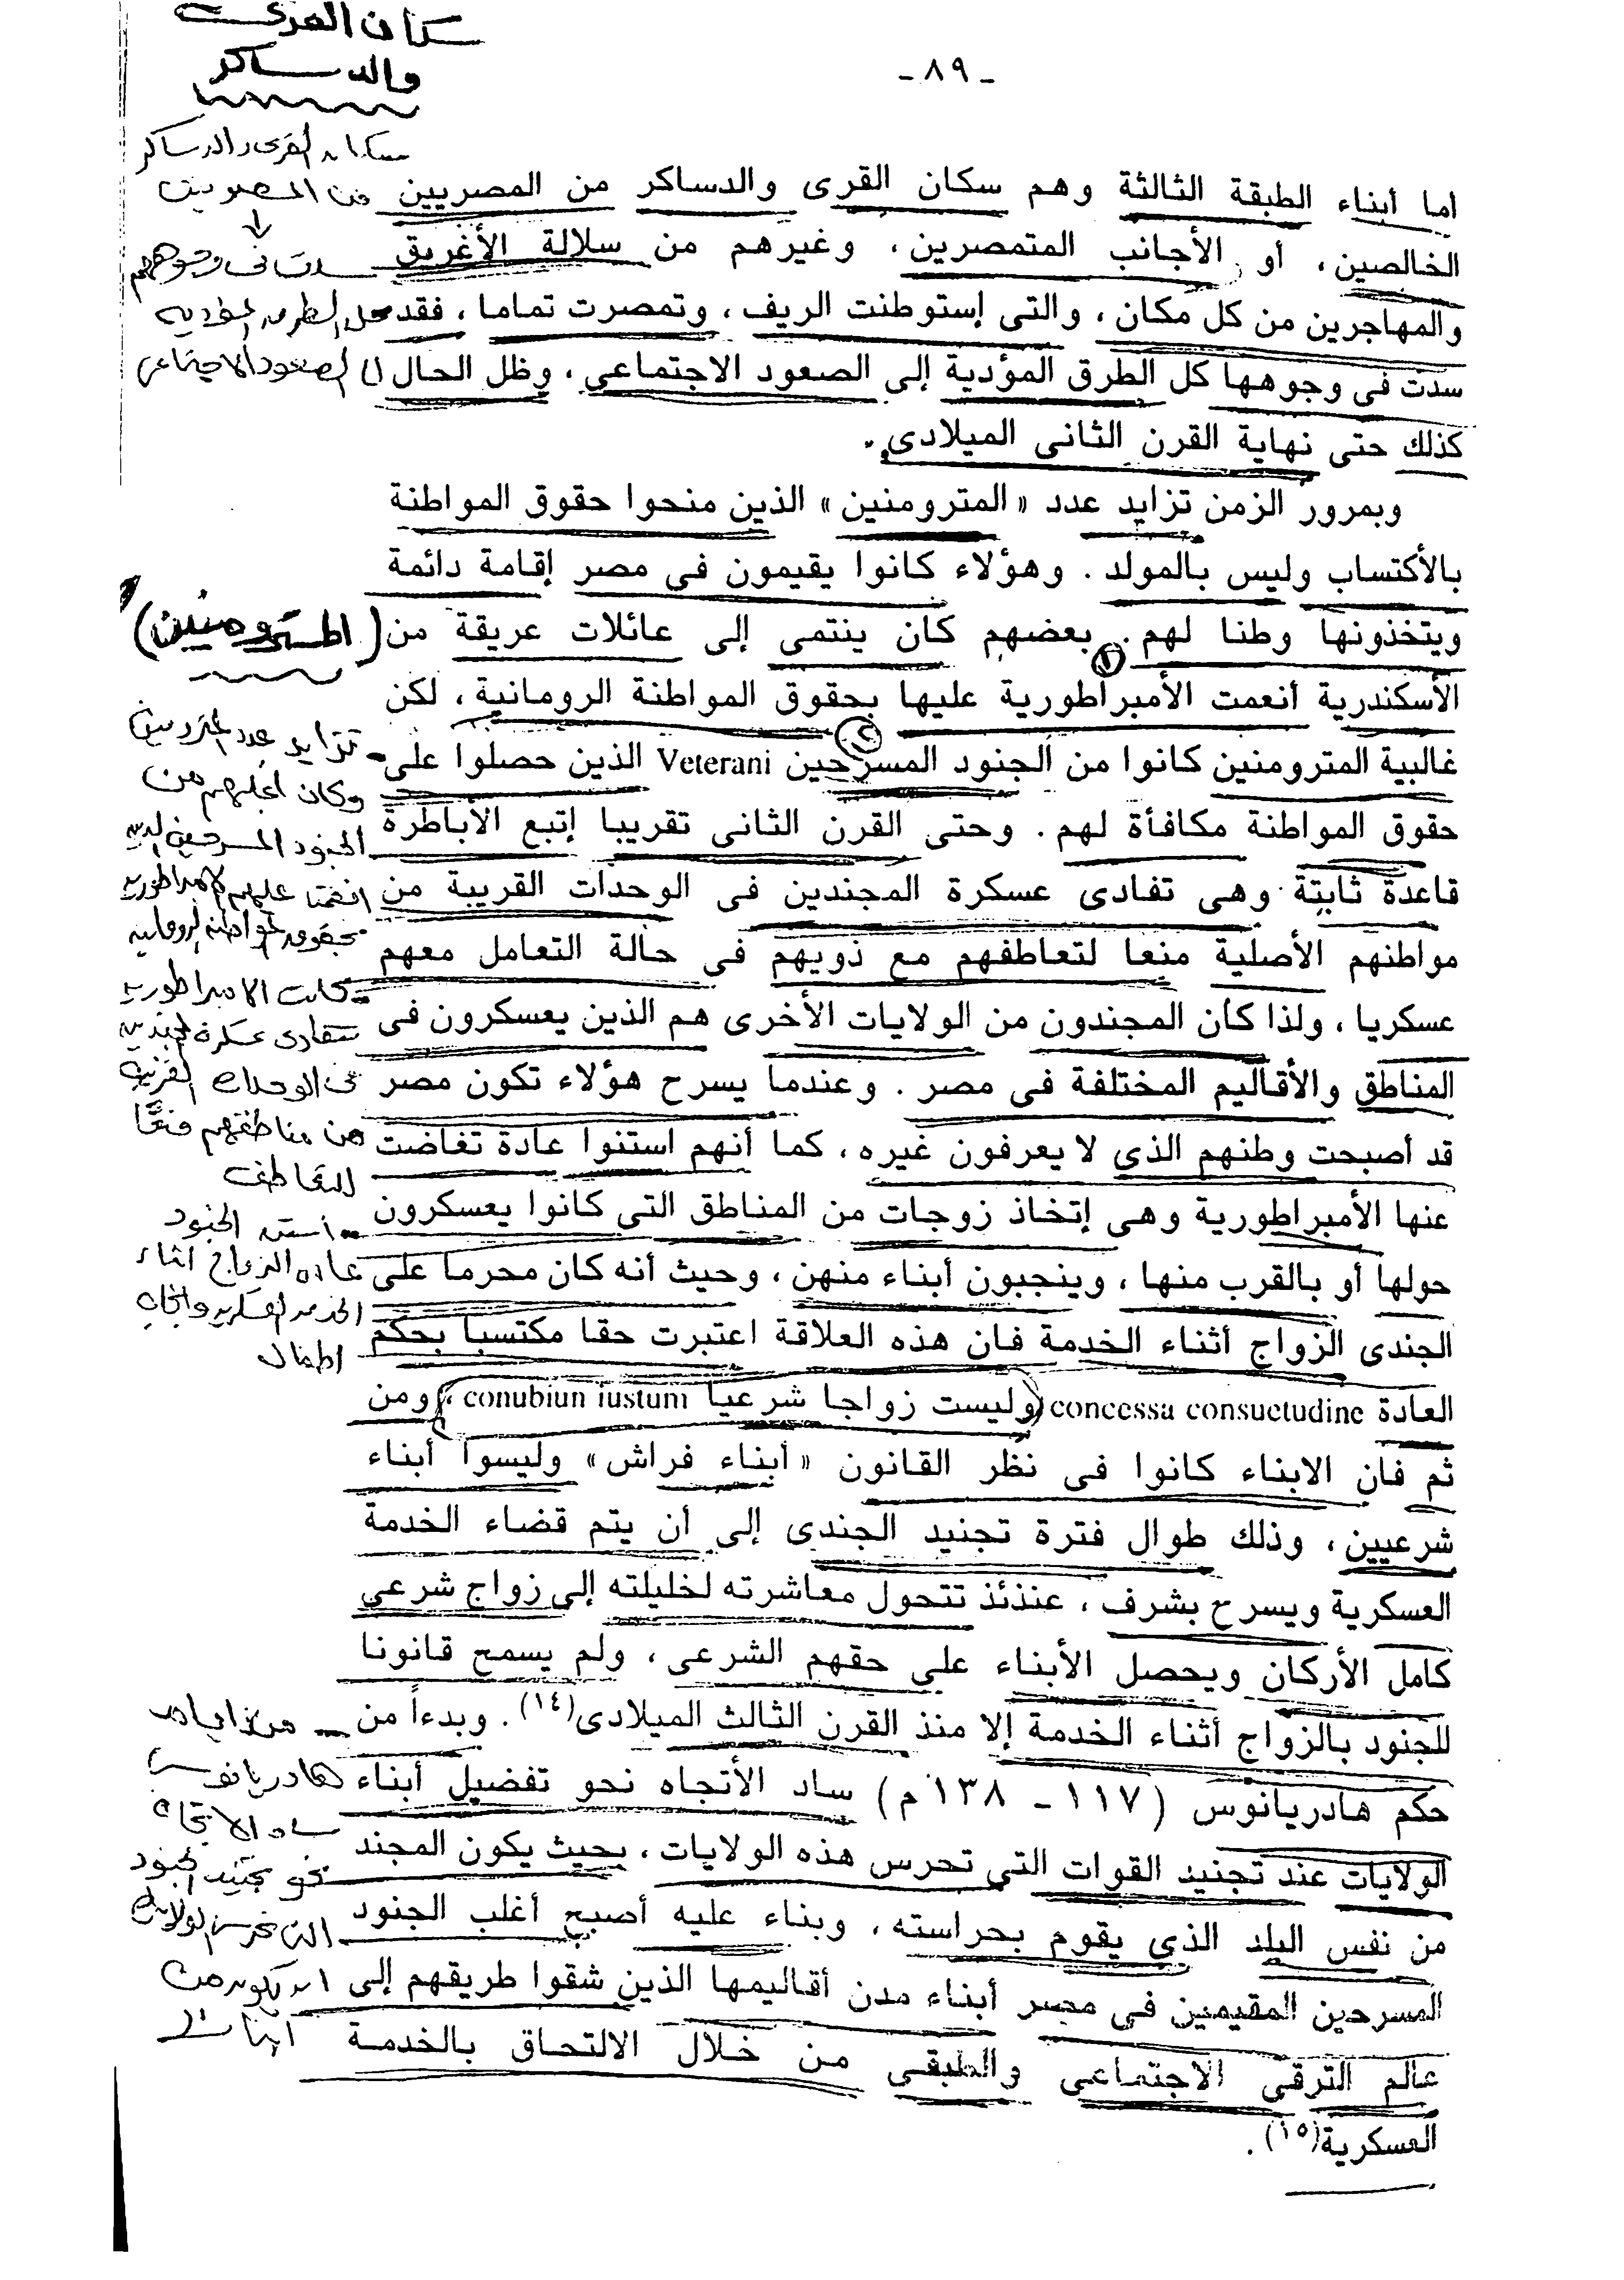 سكان القرى
والدساكر
- ٨٩ -
سكان القرى والدساكر
من المصريين
سدت فى وجوههم
كل الطرق المؤدية
الى الصعود الاجتماعى
أما أبناء الطبقة الثالثة وهم سكان القرى والدساكر من المصريين
الخالصين، أو الأجانب المتمصرين، وغيرهم من سلالة الأغريق
والمهاجرين من كل مكان، والتى إستوطنت الريف، وتمصرت تماما، فقد
سدت فى وجوهها كل الطرق المؤدية إلى الصعود الاجتماعى، وظل الحال
كذلك حتى نهاية القرن الثانى الميلادى.
وبمرور الزمن تزايد عدد «المترومنين» الذين منحوا حقوق المواطنة
بالأكتساب وليس بالمولد. وهؤلاء كانوا يقيمون فى مصر إقامة دائمة
ويتخذونها وطنا لهم. بعضهم كان ينتمى إلى عائلات عريقة من
الأسكندرية أنعمت الأمبراطورية عليها بحقوق المواطنة الرومانية، لكن
غالبية المترومنين كانوا من الجنود المسرحين Veterani الذين حصلوا على
حقوق المواطنة مكافأة لهم. وحتى القرن الثانى تقريبا إتبع الأباطرة
قاعدة ثابتة وهى تفادى عسكرة المجندين فى الوحدات القريبة من
مواطنهم الأصلية منعا لتعاطفهم مع ذويهم فى حالة التعامل معهم
عسكريا، ولذا كان المجندون من الولايات الأخرى هم الذين يعسكرون فى
المناطق والأقاليم المختلفة فى مصر. وعندما يسرح هؤلاء تكون مصر
قد أصبحت وطنهم الذى لا يعرفون غيره، كما أنهم استنوا عادة تغاضت
عنها الأمبراطورية وهى إتخاذ زوجات من المناطق التى كانوا يعسكرون
حولها أو بالقرب منها، وينجبون أبناء منهن، وحيث أنه كان محرما على
الجندى الزواج أثناء الخدمة فان هذه العلاقة اعتبرت حقا مكتسبا بحكم
العادة concessa consuetudine (وليست زواجا شرعيا conubiun iustum)، ومن
ثم فان الابناء كانوا فى نظر القانون «أبناء فراش» وليسوا أبناء
شرعيين، وذلك طوال فترة تجنيد الجندى إلى أن يتم قضاء الخدمة
العسكرية ويسرح بشرف، عندئذ تتحول معاشرته لخليلته إلى زواج شرعى
كامل الأركان ويحصل الأبناء على حقهم الشرعى، ولم يسمح قانونا
للجنود بالزواج أثناء الخدمة إلا منذ القرن الثالث الميلادى(١٤). وبدءاً من
حكم هادريانوس (١١٧ - ١٣٨ م) ساد الأتجاه نحو تفضيل أبناء
الولايات عند تجنيد القوات التى تحرس هذه الولايات، بحيث يكون المجند
من نفس البلد الذى يقوم بحراسته، وبناء عليه أصبح أغلب الجنود
المسرحين المقيمين فى مصر أبناء مدن أقاليمها الذين شقوا طريقهم إلى
عالم الترقى الاجتماعى والطبقى من خلال الالتحاق بالخدمة
العسكرية(١٥).
(المترومنين)
تزايد عدد المترومنين
وكان اغلبهم من
الجنود المسرحين الذين
انعمت عليهم الامبراطورية
بحقوق المواطنة الرومانية
كانت الامبراطورية
تتفادى عسكرة المجندين
فى الوحدات القريبة
من مناطقهم منعًا
للتعاطف
استن الجنود
عادة الزواج اثناء
الخدمة العسكرية وانجاب
اطفال
هادريانوس
ساد الاتجاه
نحو تجنيد الجنود
التى تحرس الولايات